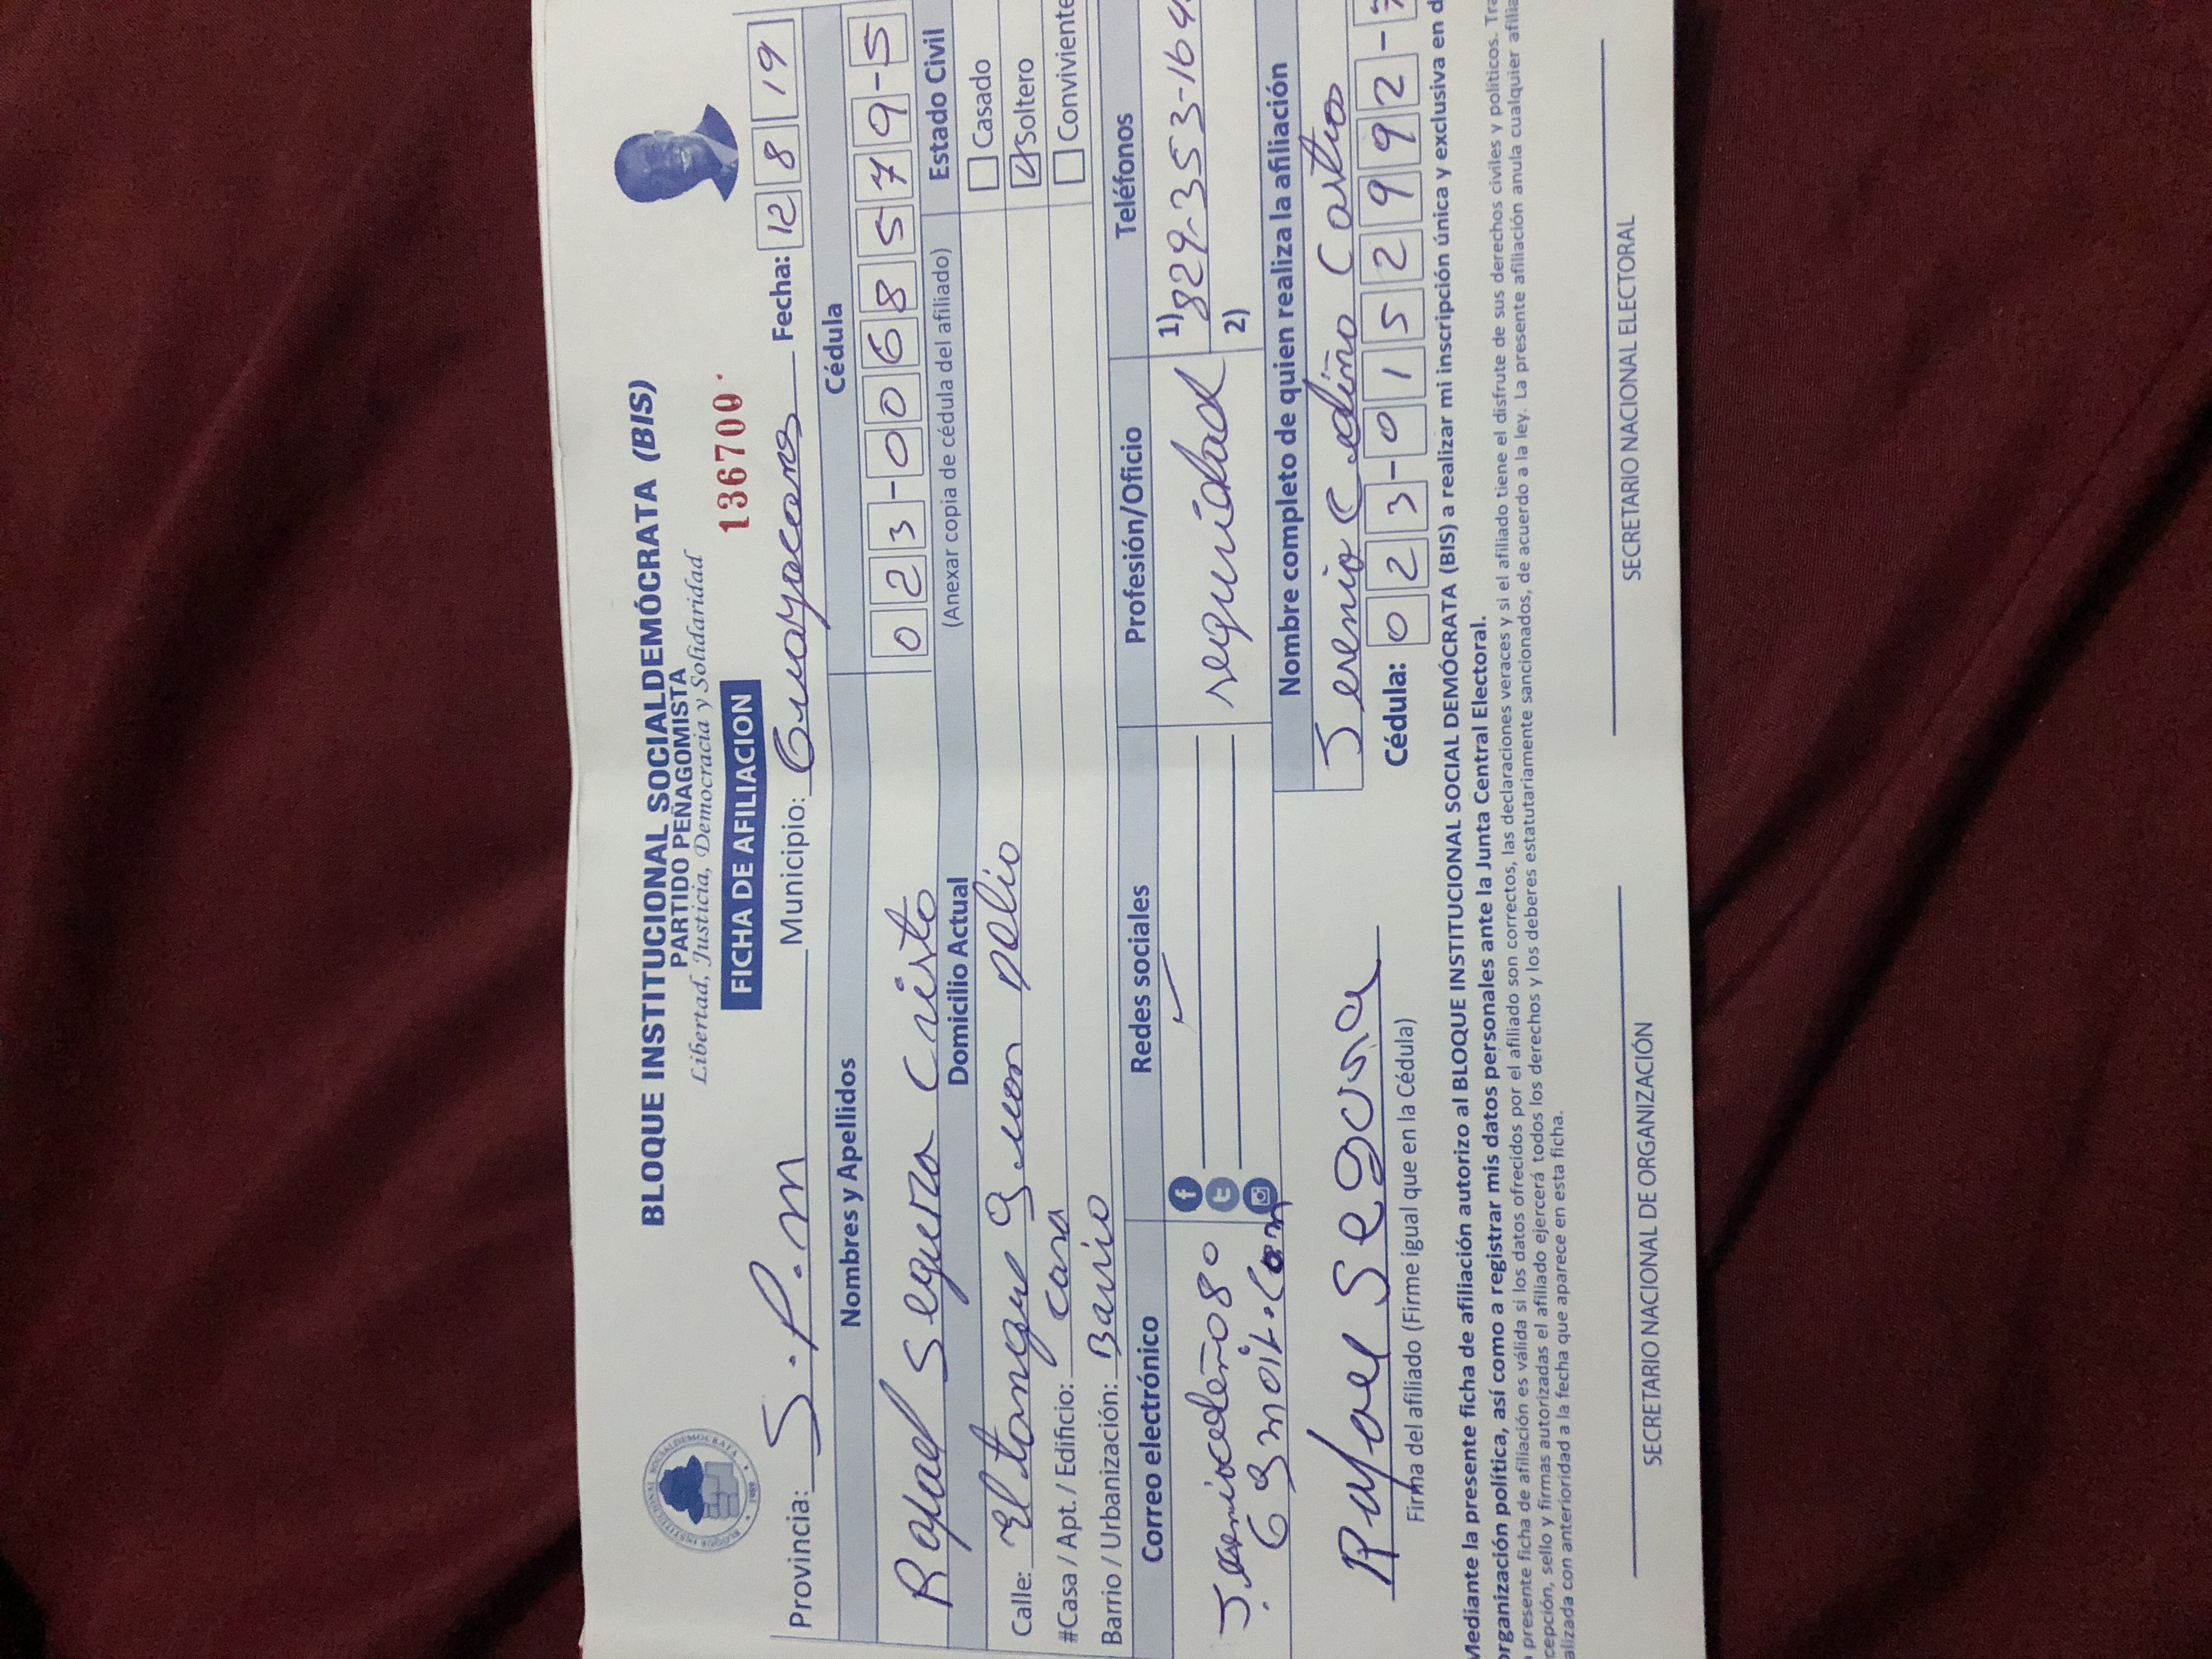 BLOQUE INSTITUCIONAL SOCIALDEMÓCRATA (BIS)
PARTIDO PEÑAGOMISTA
Libertad, Justicia, Democracia y Solidaridad
FICHA DE AFILIACION
136700
Provincia: S.P.M Municipio: Guayacans Fecha: 12 8 19
Nombres y Apellidos Cédula
Rafael Segura Cristo 023-0068579-5
Domicilio Actual (Anexar copia de cédula del afiliado) Estado Civil
Calle: El tanque Casado
#Casa / Apt. / Edificio: casa Soltero
Barrio / Urbanización: Barrio Conviviente
Correo electrónico Redes sociales Profesión/Oficio Teléfonos
seguridad 1) 829-353-164
2)
Nombre completo de quien realiza la afiliación
Cedeño Castro
Cédula: 023-0152992-
Rafael Segura
Firma del afiliado (Firme igual que en la Cédula)
Mediante la presente ficha de afiliación autorizo al BLOQUE INSTITUCIONAL SOCIAL DEMÓCRATA (BIS) a realizar mi inscripción única y exclusiva en
organización política, así como a registrar mis datos personales ante la Junta Central Electoral.
presente ficha de afiliación es válida si los datos ofrecidos por el afiliado son correctos, las declaraciones veraces y si el afiliado tiene el disfrute de sus derechos civiles y políticos.
cepción, sello y firmas autorizadas el afiliado ejercerá todos los derechos y los deberes estatutariamente sancionados, de acuerdo a la ley. La presente afiliación anula cualquier
alizada con anterioridad a la fecha que aparece en esta ficha.
SECRETARIO NACIONAL DE ORGANIZACIÓN SECRETARIO NACIONAL ELECTORAL